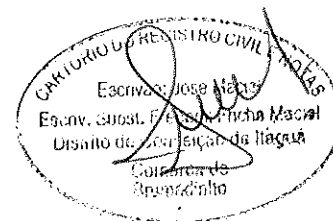 CARTÓRIO DO REGISTRO CIVIL E NOTAS
Escrivão: Jose
Escrv. Subst. Maciel
Distrito de Conceição de Itaguá
Comarca de
Brumadinho